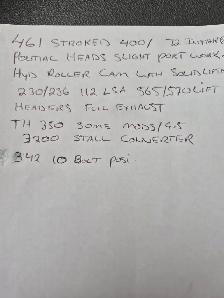 461 STROKED 400/ 72
PONTIAC HEADS SLIGHT PORT WORK,
HYD ROLLER CAM WITH SOLID
230/236 112 LSA 565/570 LIFT
HEADERS FULL EXHAUST
TH 350 SOME MODS/G.S
3200 STALL CONVERTER
342 10 BOLT POSI